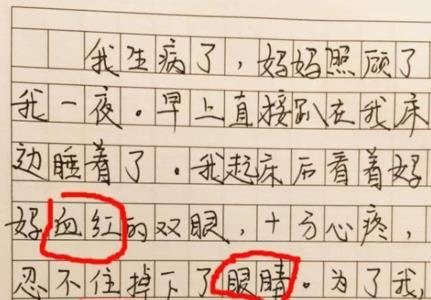 我生病了，妈妈照顾了
我一夜。早上直接趴在我床
边睡着了。我起床后看着妈
妈血红的双眼，十分心疼，
忍不住掉下了眼睛。为了我，